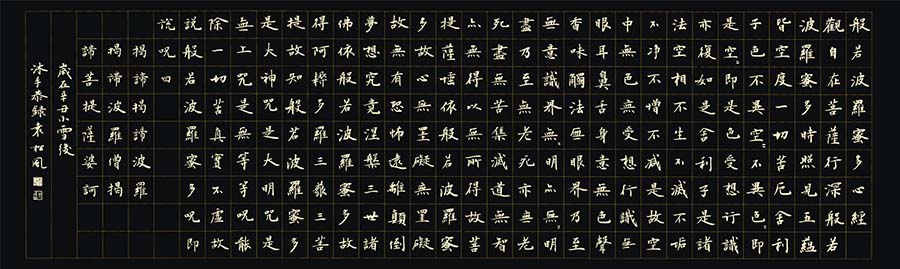 般若波羅蜜多心經
觀自在菩薩行深般若
波羅蜜多時照見五蘊
皆空度一切苦厄舍利
子色不異空〻不異色即
是空〻即是色受想行識
亦復如是舍利子是諸
法空相不生不滅不垢
不淨不增不減是故空
中無色無受想行識無
眼耳鼻舌身意無色聲
香味觸法無眼界乃至
無意識界無〻明亦無〻明
盡乃至無老死亦無老
死盡無苦集滅道無智
亦無得以無所得故菩
提薩埵依般若波羅蜜
多故心無罣礙無罣礙
故無有恐怖遠離顛倒
夢想究竟涅槃三世諸
佛依般若波羅蜜多故
得阿耨多羅三藐三菩
提故知般若波羅蜜多
是大神咒是大明咒是
無上咒是無等等咒能
除一切苦真實不虛故
說般若波羅蜜多咒即
說咒曰
揭諦揭諦波羅
揭諦波羅僧揭
諦菩提薩婆訶
歲在辛丑小雪後
沐手恭錄袁松風